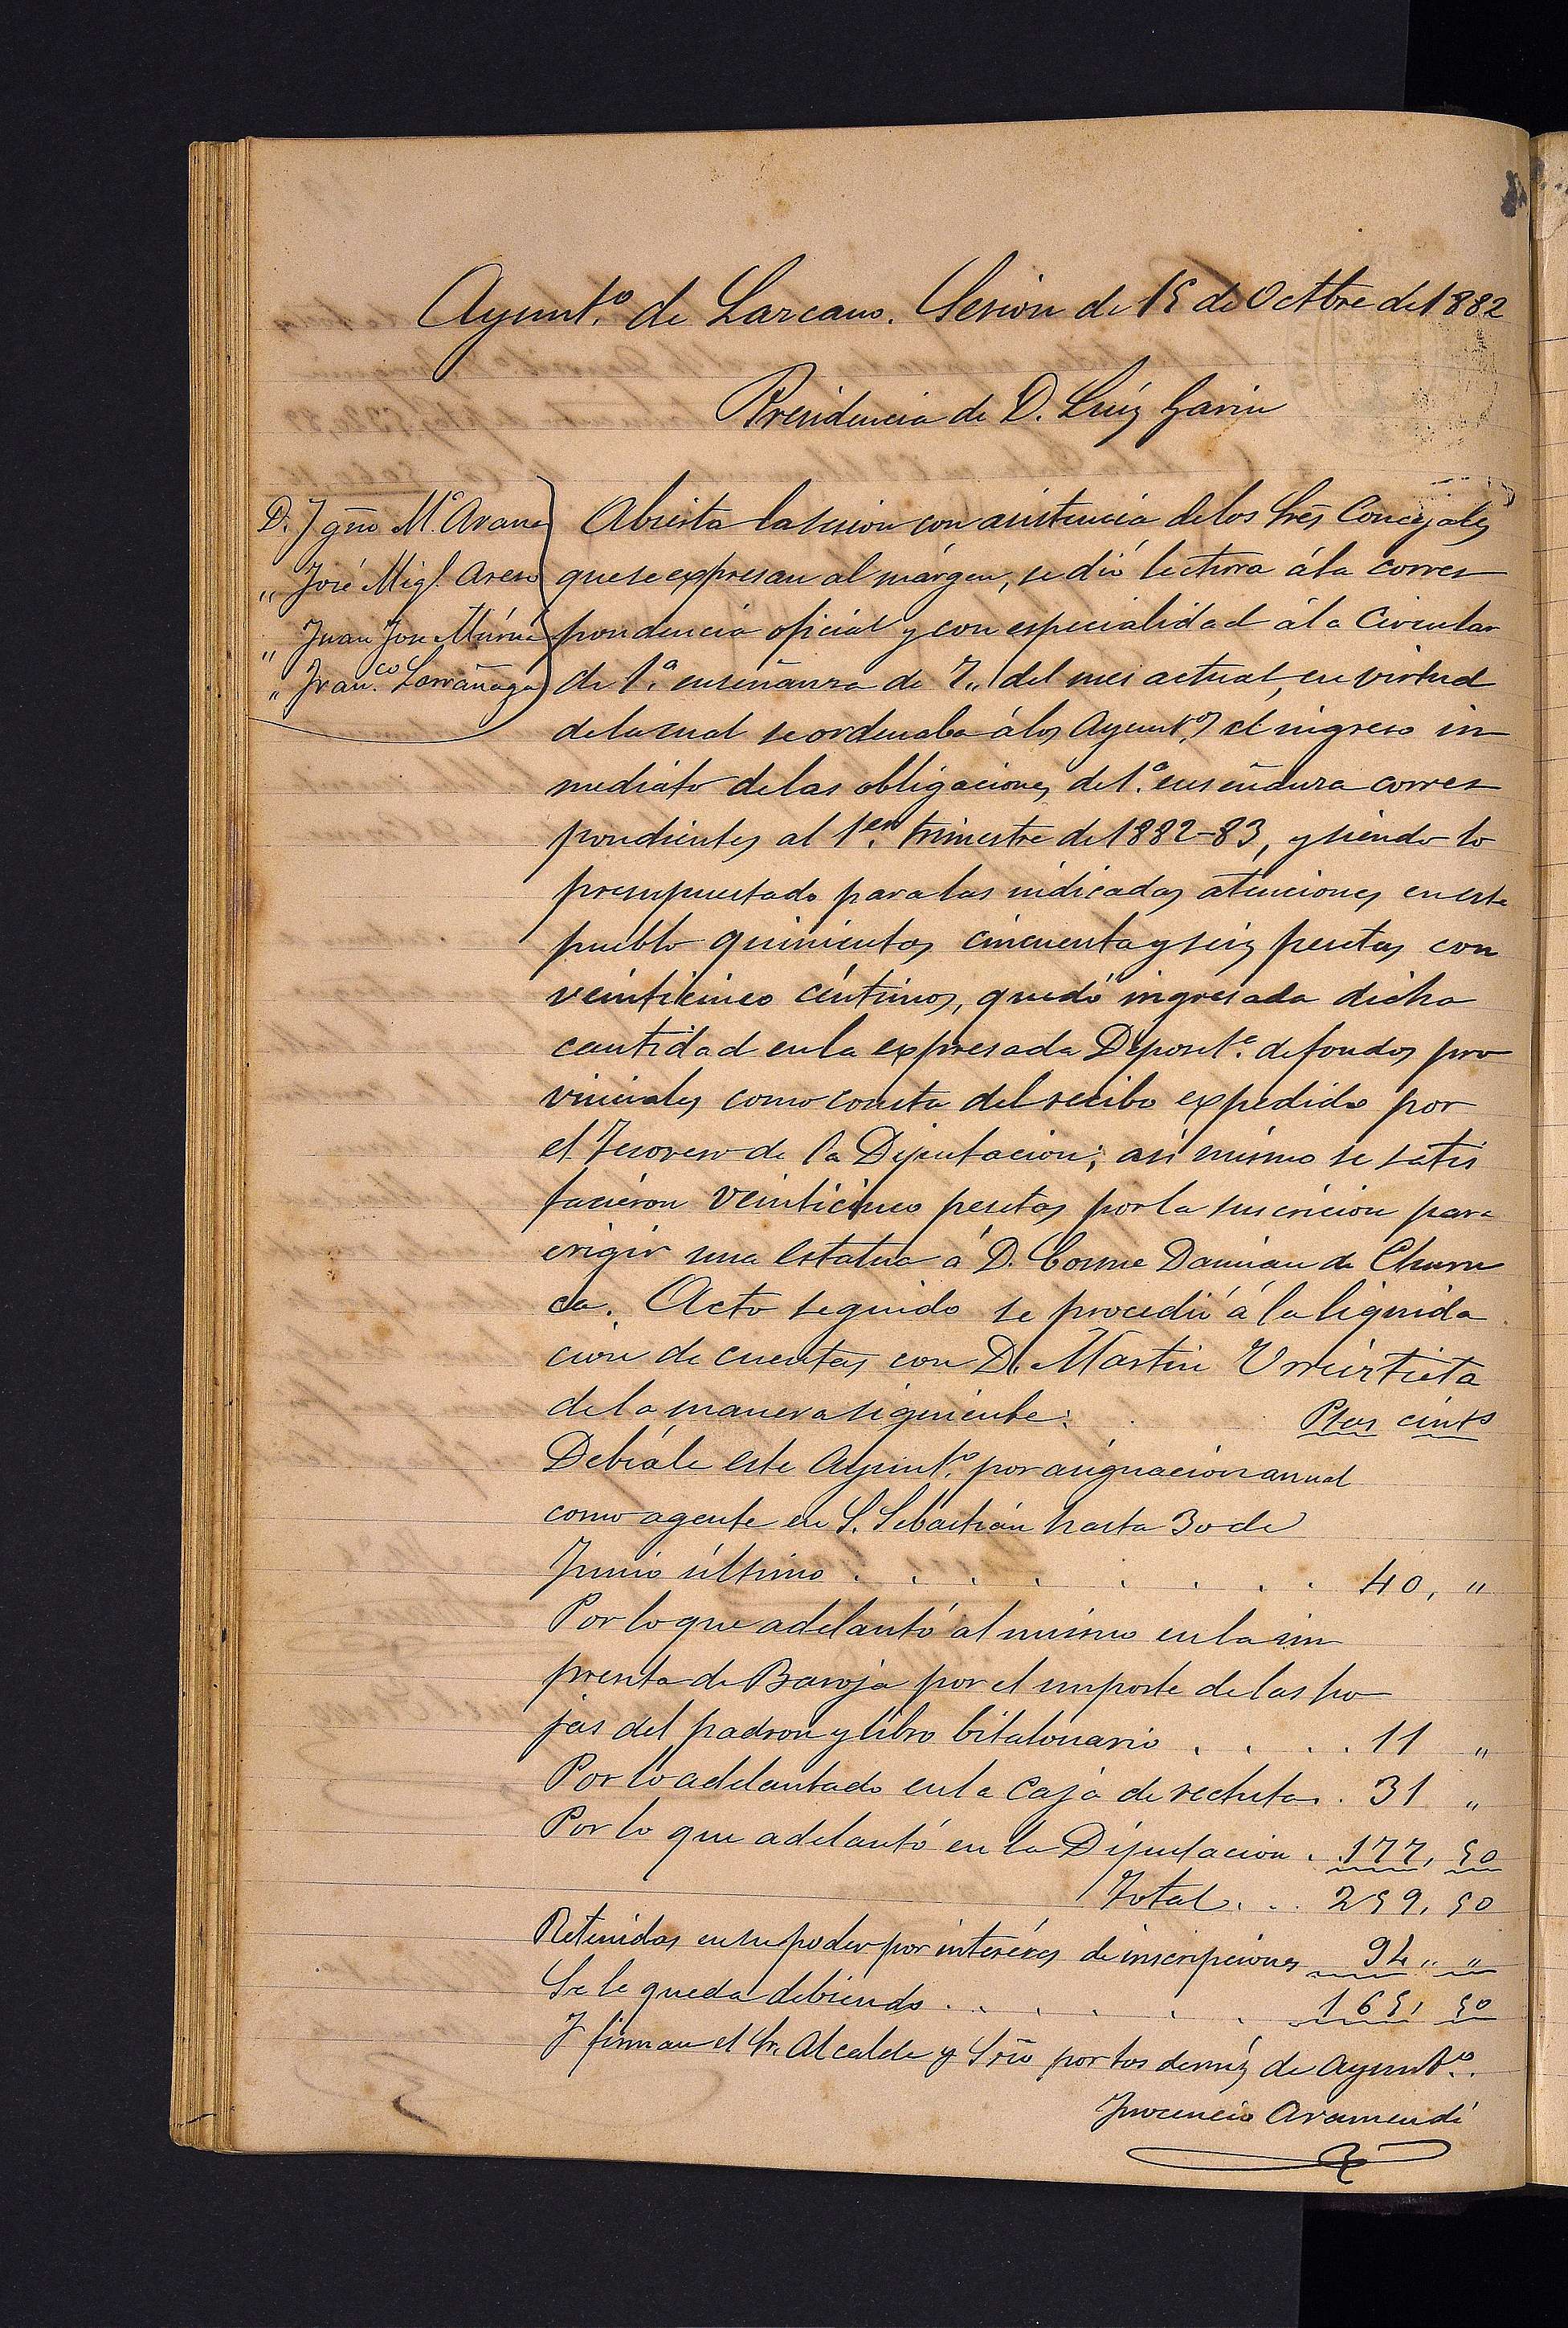 Ayunt.º de Lazcano. Sesion de 15 de Octbre de 1882
Presidencia de D. Luiz Garin
D. Ygño M.ª Arana
" José Migl. Areso
" Juan Jose Múrua
" Fran.co Larrañaga
Abierta la sesion con asistencia de los Sres Concejales
que se expresan al márgen, se dió lectura á la corres
pondencia oficial y con especialidad á la Circular
de 1.ª enseñanza de 7,, del mes actual, en virtud
de la cual se ordenaba á los Ayunt.os el ingreso in
mediato de las obligaciones de 1.ª enseñanza corres
pondientes al 1.er trimestre de 1882-83, y siendo lo
presupuestado para las indicadas atenciones en este
pueblo quinientas cincuenta y seis pesetas con
veinticinco céntimos, quedó ingresada dicha
cantidad en la expresada Deposit.ª de fondos pro
vinciales como consta del recibo expedido por
el Tesorero de la Diputacion; asi mismo se satis
facieron veinticinco pesetas por la suscricion para
erigir una estatua á D. Cosme Damian de Churru
ca. Acto seguido se procedió á la liquida
cion de cuentas con D. Martin Urreiztieta
de la manera siguiente: Ptas cints
Debíale este Ayunt.º por asignacion anual
como agente en S. Sebastián hasta 30 de
Junio último . . . . . . . . 40, "
Por lo que adelantó al mismo en la im
prenta de Baroja por el importe de las ho
jas del padron y libro bitalonario . . . . 11 "
Por lo adelantado en la Caja de reclutas . 31 "
Por lo que adelantó en la Diputacion . . 177, 50
Total . . . 259, 50
Retenidas en su poder por interéses de inscripciones 94 " "
Se le queda debiendo . . . . . . 165, 50
Y firman el Sr. Alcalde y Srio por los demás de Ayunt.º.
Inocencio Aramendi